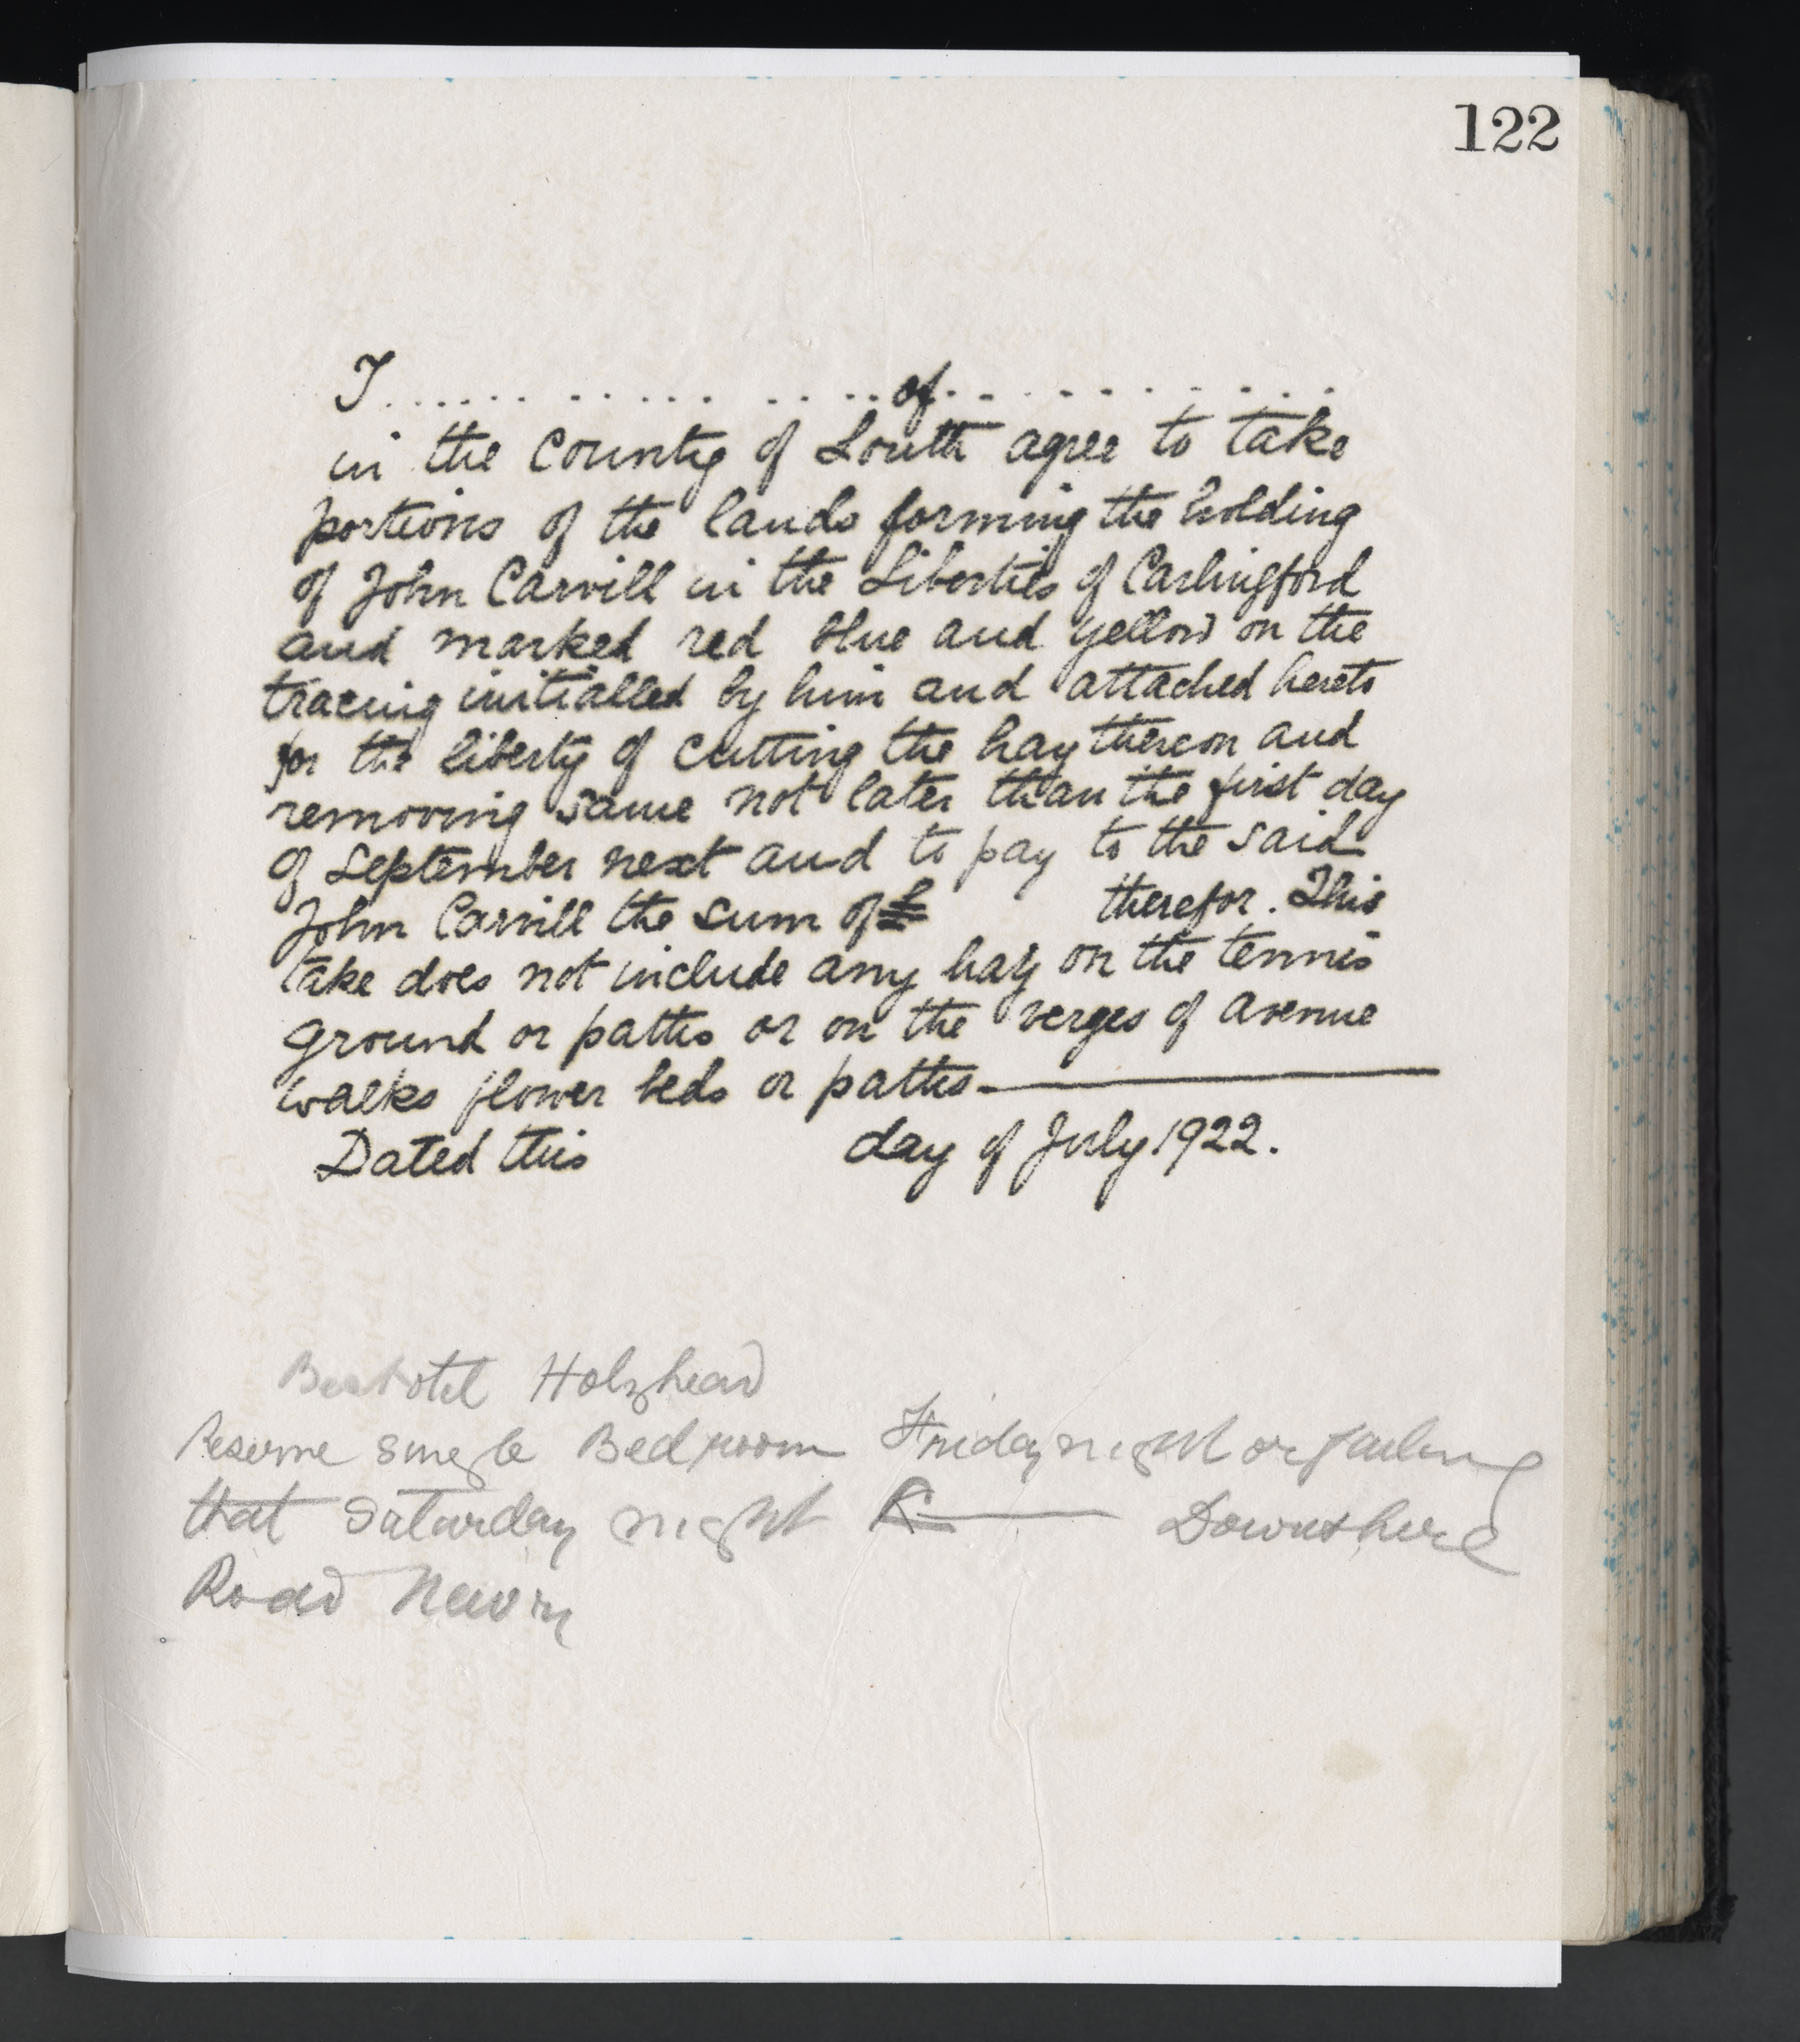 122
I . . . . . . . . . . . . . . . . of . . . . . . . . . . .
in the County of Louth agree to take
portions of the lands forming the holding
of John Carvill in the Liberties of Carlingford
and marked red blue and yellow on the
tracing initialled by him and attached hereto
for the liberty of cutting the hay thereon and
removing same not later than the first day
of September next and to pay to the said
John Carvill the sum of £ therefor. This
take does not include any hay on the tennis
ground or paths or on the verges of avenue
walks flower beds or paths—
Dated this day of July 1922.
Holyhead
Reserve single Bedroom Friday night or failing
that Saturday night Downshire
Road Newry